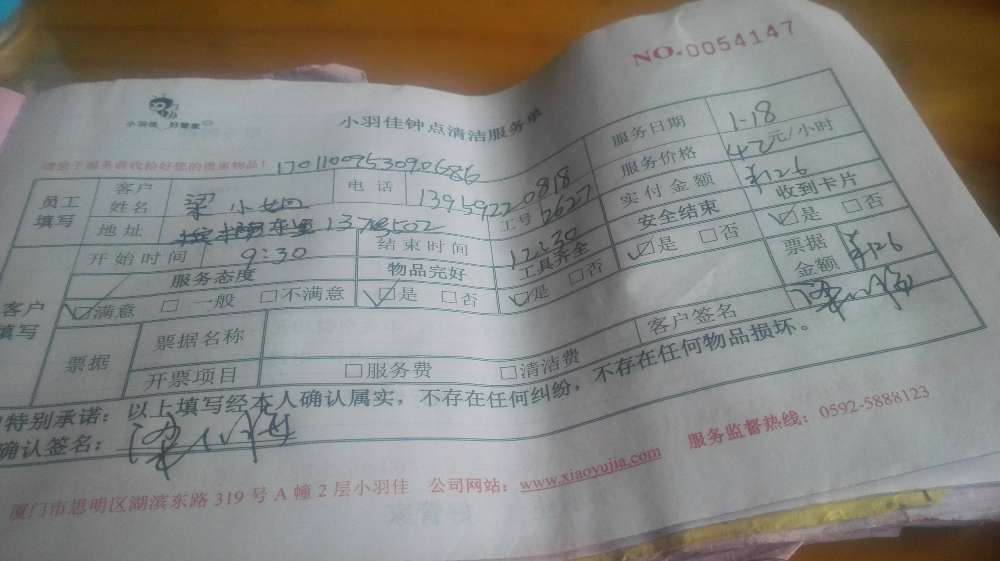 NO.0054147
小羽佳 好管家
小羽佳钟点清洁服务单
服务日期 1-18
请您于服务前收检好您的贵重物品! 1701100953090686
服务价格 42元/小时
员工填写 客户姓名 梁小姐 电话 13959220818 实付金额 ¥126
地址 1378502 工号 2627 安全结束 ☑是 □否 收到卡片 ☑是 □否
开始时间 9:30 结束时间 12:30
客户填写 服务态度 物品完好 工具齐全 票据金额 ¥126
☑满意 □一般 □不满意 ☑是 □否 ☑是 □否
票据 票据名称 客户签名
开票项目 □服务费 □清洁费
特别承诺：以上填写经本人确认属实，不存在任何纠纷，不存在任何物品损坏。
确认签名：
厦门市思明区湖滨东路319号A幢2层小羽佳 公司网站：www.xiaoyujia.com 服务监督热线：0592-5888123